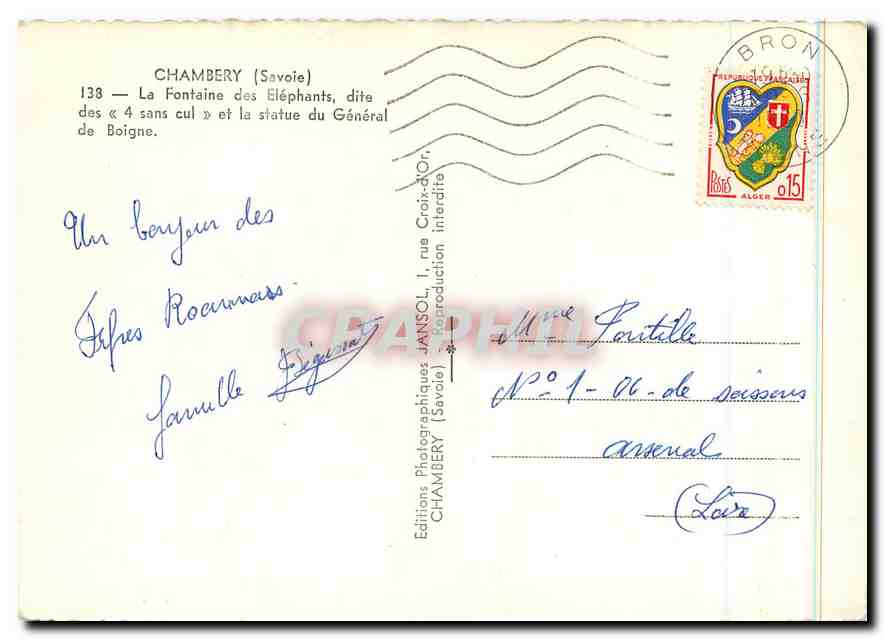 CHAMBERY (Savoie)
138 — La Fontaine des Eléphants, dite
des « 4 sans cul » et la statue du Général
de Boigne.
BRON
REPUBLIQUE FRANÇAISE
POSTES
0,15
ALGER
Un bonjour des
Alpes Roannais
famille
Editions Photographiques JANSOL, 1, rue Croix-d'Or,
CHAMBERY (Savoie) * Reproduction interdite
CPAPHIL
Mme
N° 1 - 06 - de soissons
arsenal
(Loire)